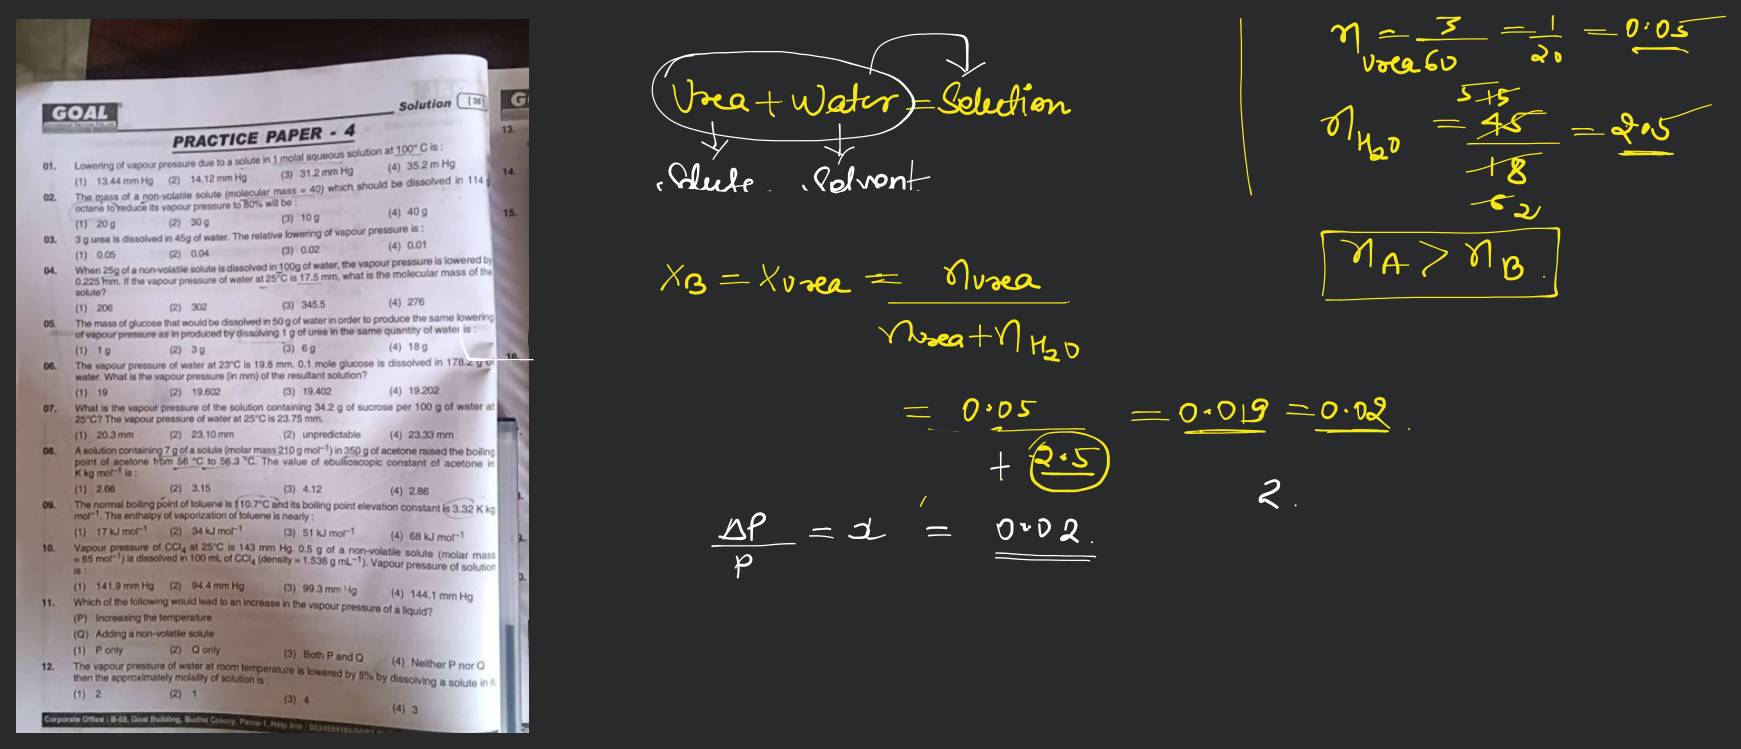 GOAL
Solution [36]
PRACTICE PAPER - 4
01. Lowering of vapour pressure due to a solute in 1 molal aqueous solution at 100° C is :
(1) 13.44 mm Hg (2) 14.12 mm Hg (3) 31.2 mm Hg (4) 35.2 m Hg
02. The mass of a non-volatile solute (molecular mass = 40) which should be dissolved in 114
octane to reduce its vapour pressure to 80% will be :
(1) 20 g (2) 30 g (3) 10 g (4) 40 g
03. 3 g urea is dissolved in 45g of water. The relative lowering of vapour pressure is :
(1) 0.05 (2) 0.04 (3) 0.02 (4) 0.01
04. When 25g of a non-volatile solute is dissolved in 100g of water, the vapour pressure is lowered by
0.225 mm. If the vapour pressure of water at 25°C is 17.5 mm, what is the molecular mass of the
solute?
(1) 206 (2) 302 (3) 345.5 (4) 276
05. The mass of glucose that would be dissolved in 50 g of water in order to produce the same lowering
of vapour pressure as in produced by dissolving 1 g of urea in the same quantity of water is :
(1) 1 g (2) 3 g (3) 6 g (4) 18 g
06. The vapour pressure of water at 23°C is 19.8 mm. 0.1 mole glucose is dissolved in 178.2 g of
water. What is the vapour pressure (in mm) of the resultant solution?
(1) 19 (2) 19.602 (3) 19.402 (4) 19.202
07. What is the vapour pressure of the solution containing 34.2 g of sucrose per 100 g of water at
25°C? The vapour pressure of water at 25°C is 23.75 mm.
(1) 20.3 mm (2) 23.10 mm (2) unpredictable (4) 23.33 mm
08. A solution containing 7 g of a solute (molar mass 210 g mol⁻¹) in 350 g of acetone raised the boiling
point of acetone from 56 °C to 56.3 °C. The value of ebullioscopic constant of acetone in
K kg mol⁻¹ is :
(1) 2.66 (2) 3.15 (3) 4.12 (4) 2.86
09. The normal boiling point of toluene is 110.7°C and its boiling point elevation constant is 3.32 K kg
mol⁻¹. The enthalpy of vaporization of toluene is nearly :
(1) 17 kJ mol⁻¹ (2) 34 kJ mol⁻¹ (3) 51 kJ mol⁻¹ (4) 68 kJ mol⁻¹
10. Vapour pressure of CCl₄ at 25°C is 143 mm Hg. 0.5 g of a non-volatile solute (molar mass
= 65 mol⁻¹) is dissolved in 100 mL of CCl₄ (density = 1.538 g mL⁻¹). Vapour pressure of solution
is :
(1) 141.9 mm Hg (2) 94.4 mm Hg (3) 99.3 mm Hg (4) 144.1 mm Hg
11. Which of the following would lead to an increase in the vapour pressure of a liquid?
(P) Increasing the temperature
(Q) Adding a non-volatile solute
(1) P only (2) Q only (3) Both P and Q (4) Neither P nor Q
12. The vapour pressure of water at room temperature is lowered by 5% by dissolving a solute in it,
then the approximately molality of solution is :
(1) 2 (2) 1 (3) 4 (4) 3
Corporate Office : B-58, Goal Building, Budha Colony, Patna-1, Help line :
G
13.
14.
15.
16.
Urea + Water = Selection
Solute Solvent
XB = Xurea = nurea
nurea + nH2O
= 0.05 = 0.019 = 0.02
+ 2.5
2.
ΔP = x = 0.02.
P
n urea = 3 = 1 = 0.05
60 20
515
nH2O = 45 = 2.5
18
6 2
nA > nB.